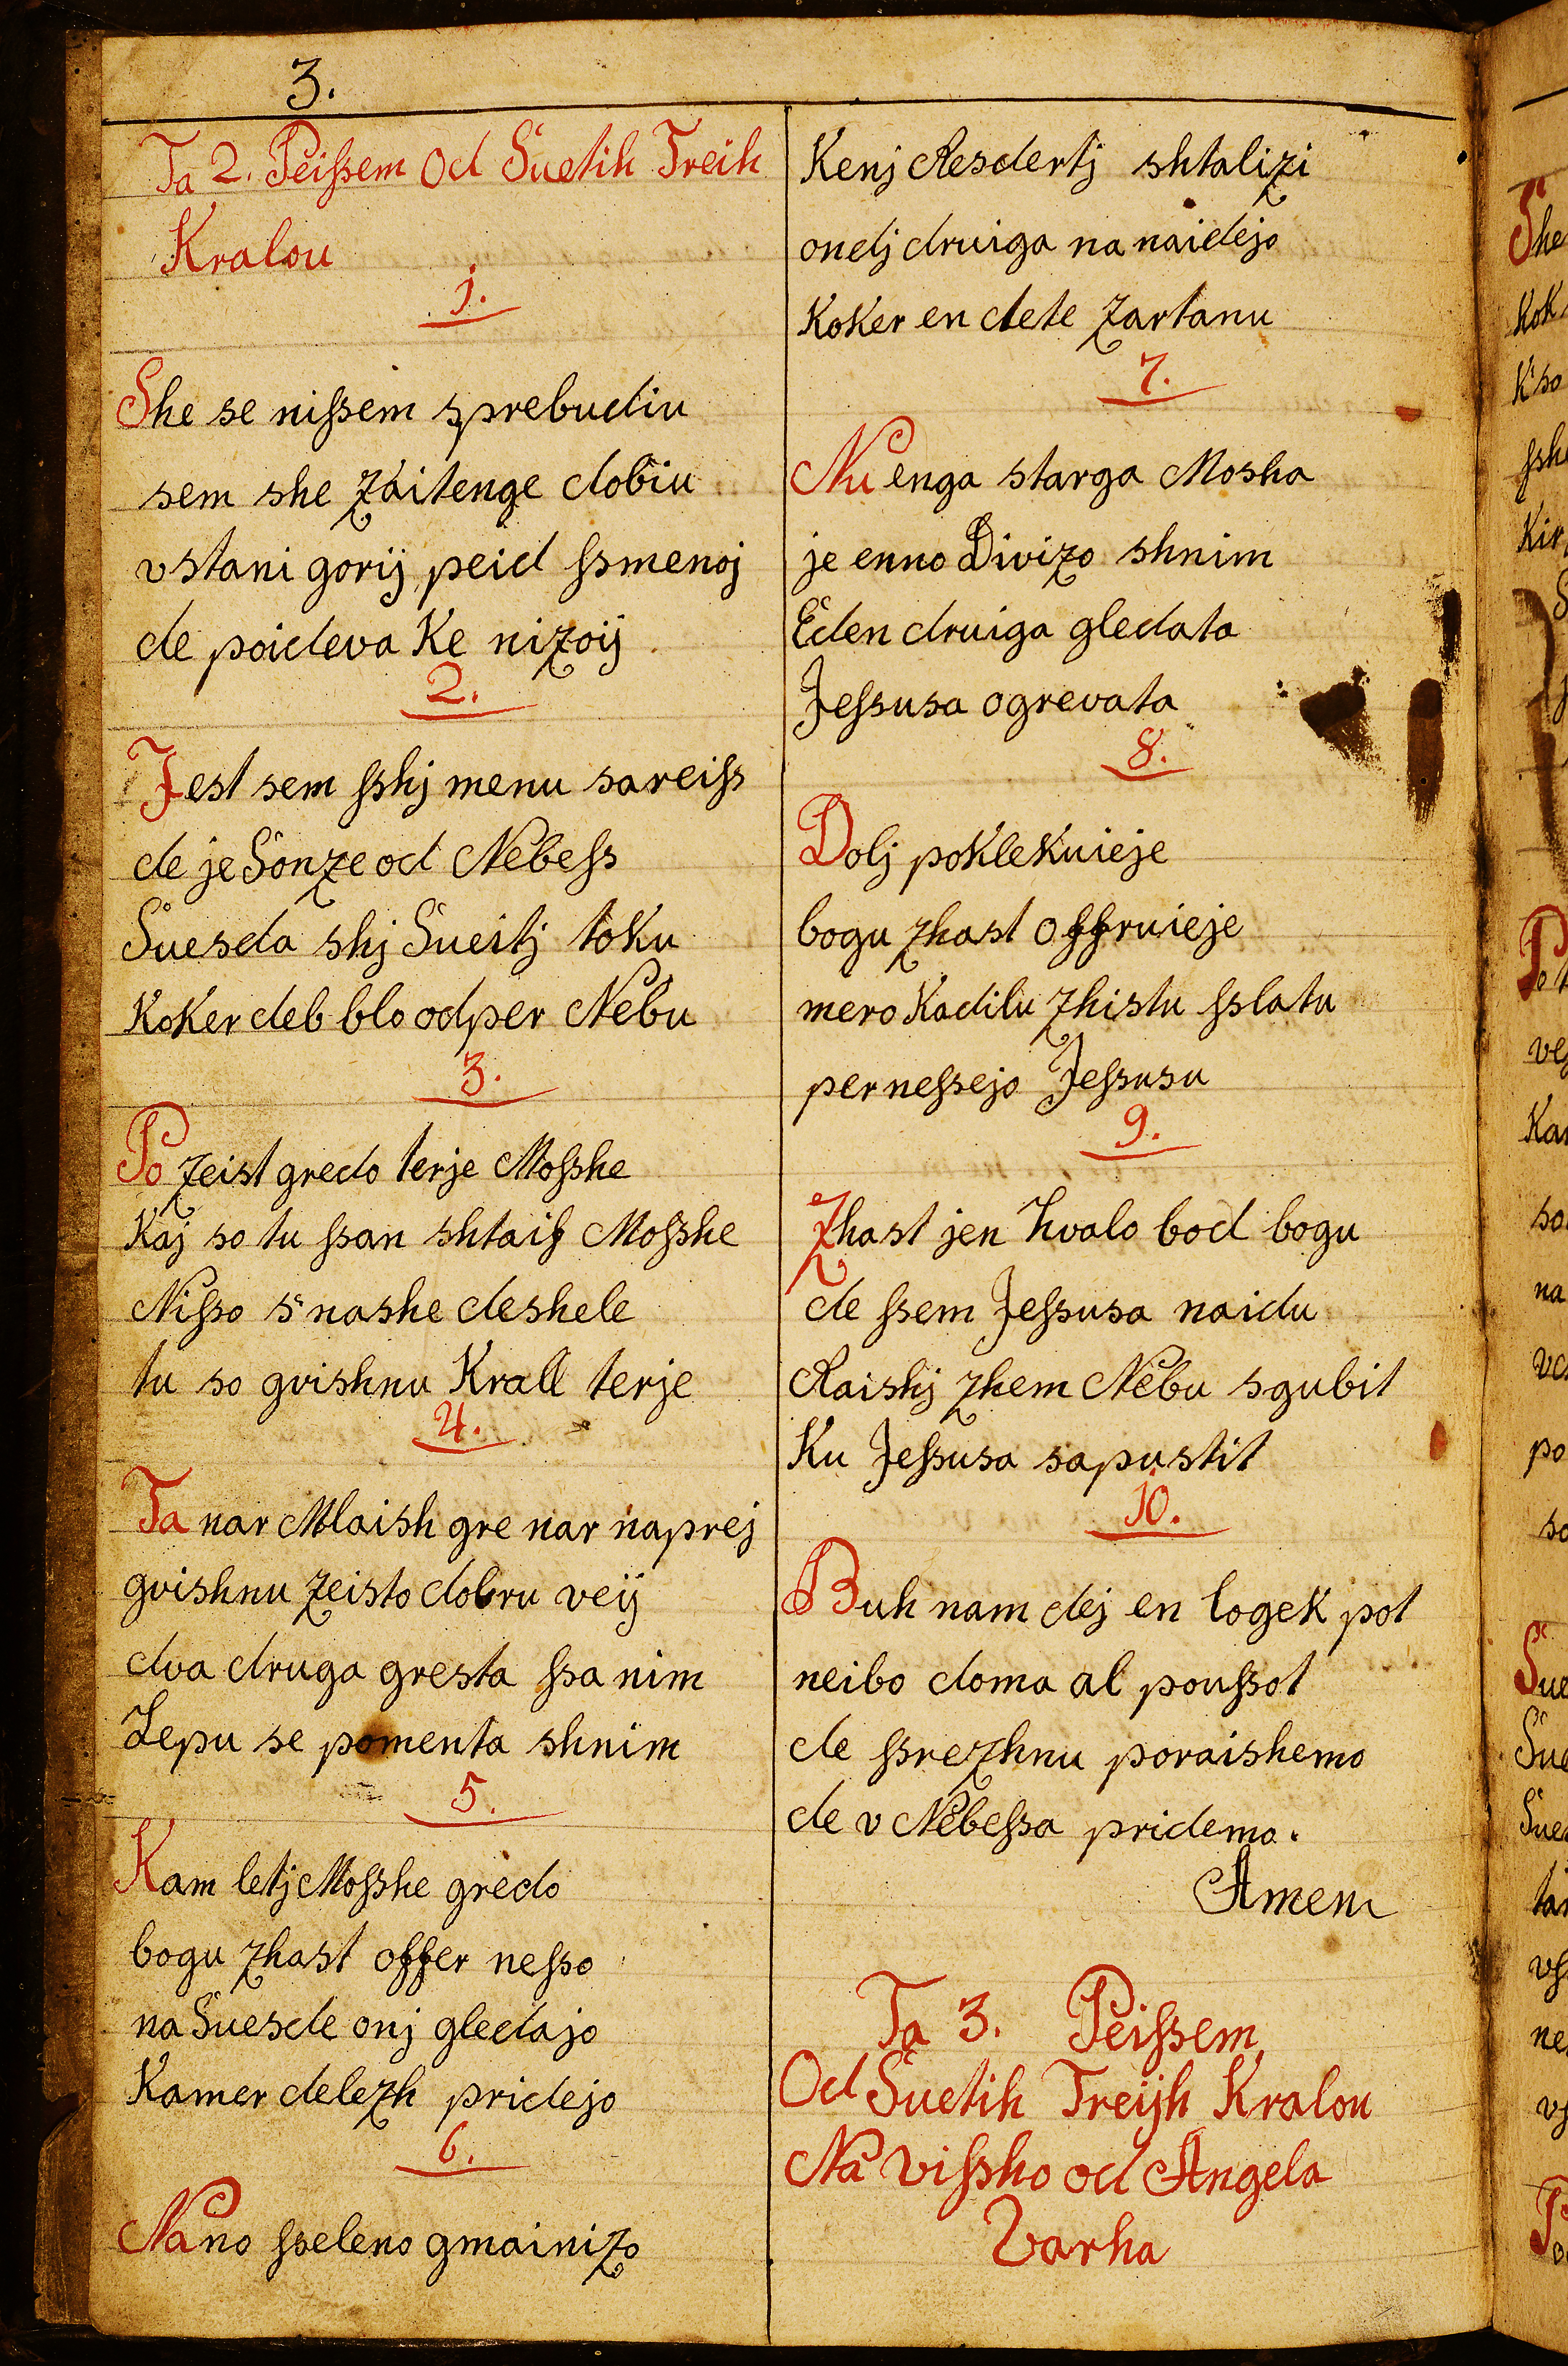 3.
Ta 2. Peißem Od Suetih Treih
Kralou
1.
She se nißem sprebudiu
sem she zaitenge dobiu
vstani gorij peid ßmenoj
de poideva Ke nizoij
2.
Jest sem ßhj menu sareiß
de je Sonze od Nebeß
Suesda shj Sueitj toku
Koker deb blo odper Nebu
3.
Po zeist gredo terje Moßhe
Kaj so tu ßan shtaiß Moßhe
Nißo s nashe deshele
tu so gvishnu Krall terje
4.
Ta nar Mlaish gre nar naprej
gvishnu zeisto dobru veij
dva druga gresta ßa nim
Lepu se pomenta shnim
5.
Kam letj Moßhe gredo
bogu zhast offer neßo
na Suesde onj gledajo
Kamer delezh pridejo
6.
Nano ßeleno gmainizo
Kenj Resdertj shtalizi
ondj druiga na naidejo
Koker en dete zartanu
7.
Nu enga starga Mosha
je enno Divizo shnim
Eden druiga gledata
Jeßusa ogrevata
8.
Dolj poklekuieje
bogu zhast offruieje
mero Kadilu zhistu ßlatu
perneßejo Jeßusu
9.
Zhast jen hvalo bod bogu
de ßem Jeßusa naidu
Raishj zhem Nebu sgubit
Ku Jeßusa sapustit
10.
Buh nam dej en logek pot
neibo doma al poußot
de ßrezhnu poraishemo
de v Nebeßa pridemo.
Amen
Ta 3. Peißem
Od Suetih Treijh Kralou
Na vißho od Angela
Varha